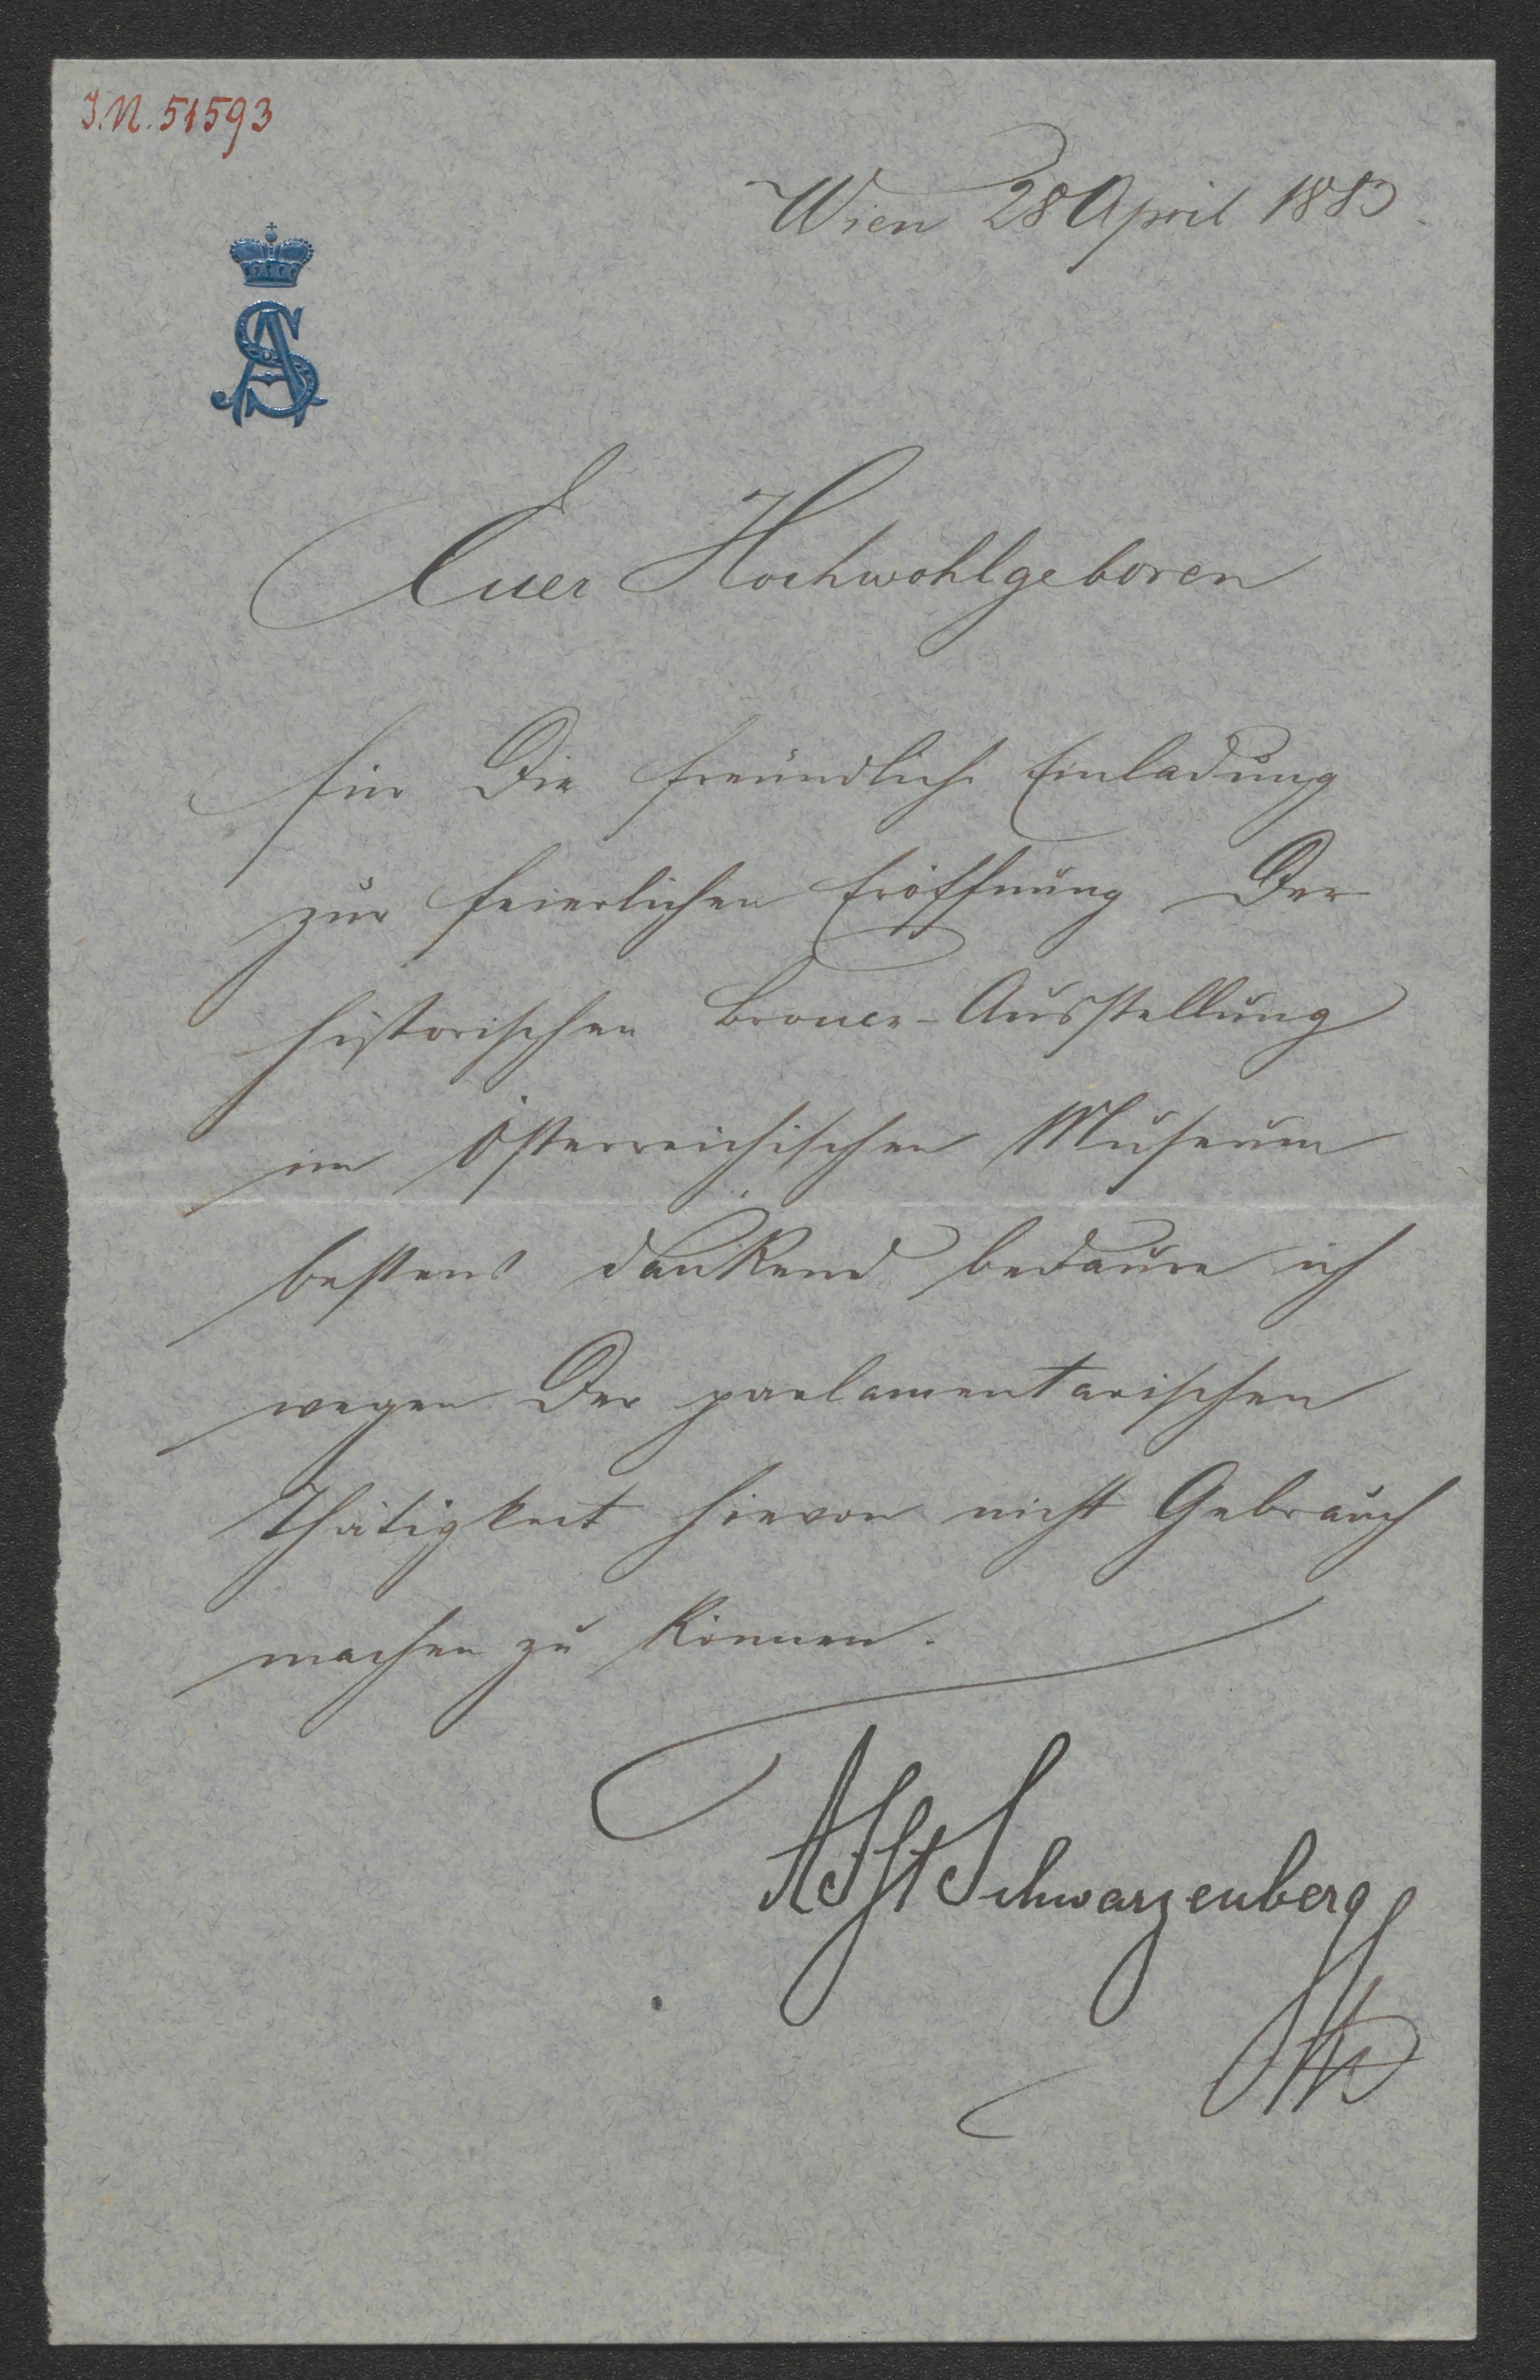 J.N. 51593
Wien 28 April 1883
AS
Euer Hochwohlgeboren
für die freundliche Einladung
zur feierlichen Eröffnung der
historischen Bronce-Ausstellung
im Österreichischen Museum
bestens dankend bedaure ich
wegen der parlamentarischen
Thätigkeit hievon nicht Gebrauch
machen zu können.
AFst Schwarzenberg